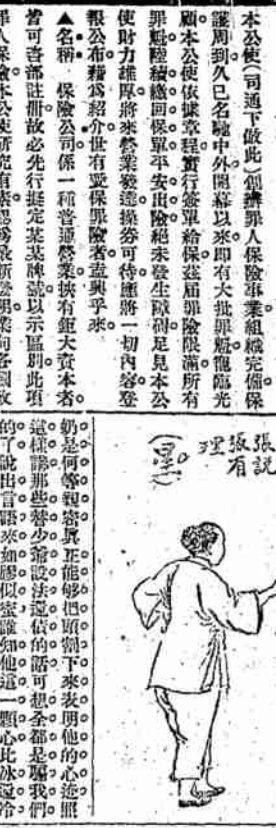 本公使(司通下倣此)創辦罪人保險事業組織完備保
護周到久已名馳中外開幕以來即有大批罪魁寵臨光
顧本公使依據章程實行簽單給保茲屆罪險限滿所有
罪魁陸續繳回保單平安出險絕未發生障碍足見本公
使財力雄厚將來營業發達操券可待應將一切內容登
報公布藉為紹介世有愛保罪險者盍興乎來
▲名稱 保險公司係一種普通營業挾有鉅大資本者
皆可咨部註冊故必先行擬定某某牌號以示區別此項
罪人保險本公使研究有素認為最新發明業向各國政
張說
張有
理
奶是何等親密真正能够把頭割下來表明他的心迹照
這樣講那些替少爺設法還債的話可想全都是騙我們
的了說出言語來如膠似蜜誰知他這一顆心比冰還冷